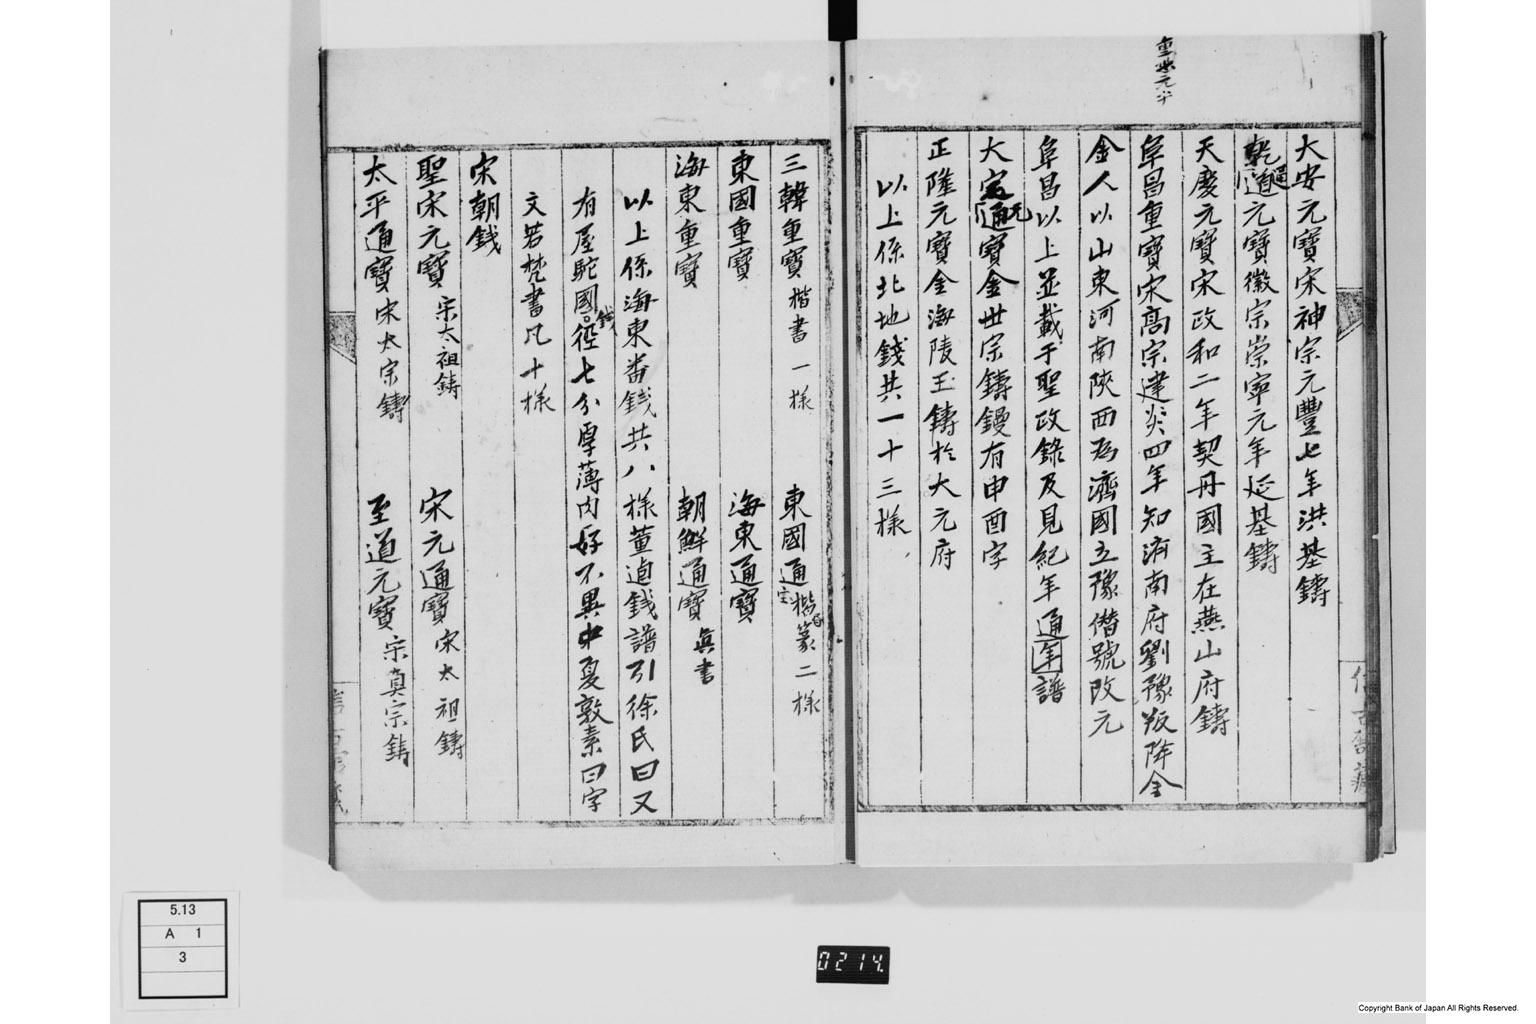 大安元寶宋神宗元豐七年洪基鑄
乾道元寶徽宗崇寧元年延基鑄
天慶元寶宋政和二年契丹國主在燕山府鑄
重熙元年
阜昌重寶宋高宗建炎四年知濟南府劉豫叛降金
金人以山東河南陝西為濟國立豫僭號改元
阜昌以上並載于聖政錄及見紀年通年譜
大定通元寶金世宗鑄鏝有申酉字
正隆元寶金海陵王鑄於大元府
以上係北地錢共一十三樣
三韓重寶 楷書一樣 東國通宝 楷篆二樣
東國重寶 海東通寶
海東重寶 朝鮮通寶 真書
以上係海東番錢共八樣董逌錢譜引徐氏曰又
有屋馱國錢徑七分厚薄肉好不異中夏敦素曰字
文若梵書凡十樣
宋朝錢
聖宋元寶 宗太祖鑄 宋元通寶 宋太祖鑄
太平通寶 宋太宗鑄 至道元寶 宗真宗鑄
5.13
A 1
3
0214.
Copyright Bank of Japan All Rights Reserved.